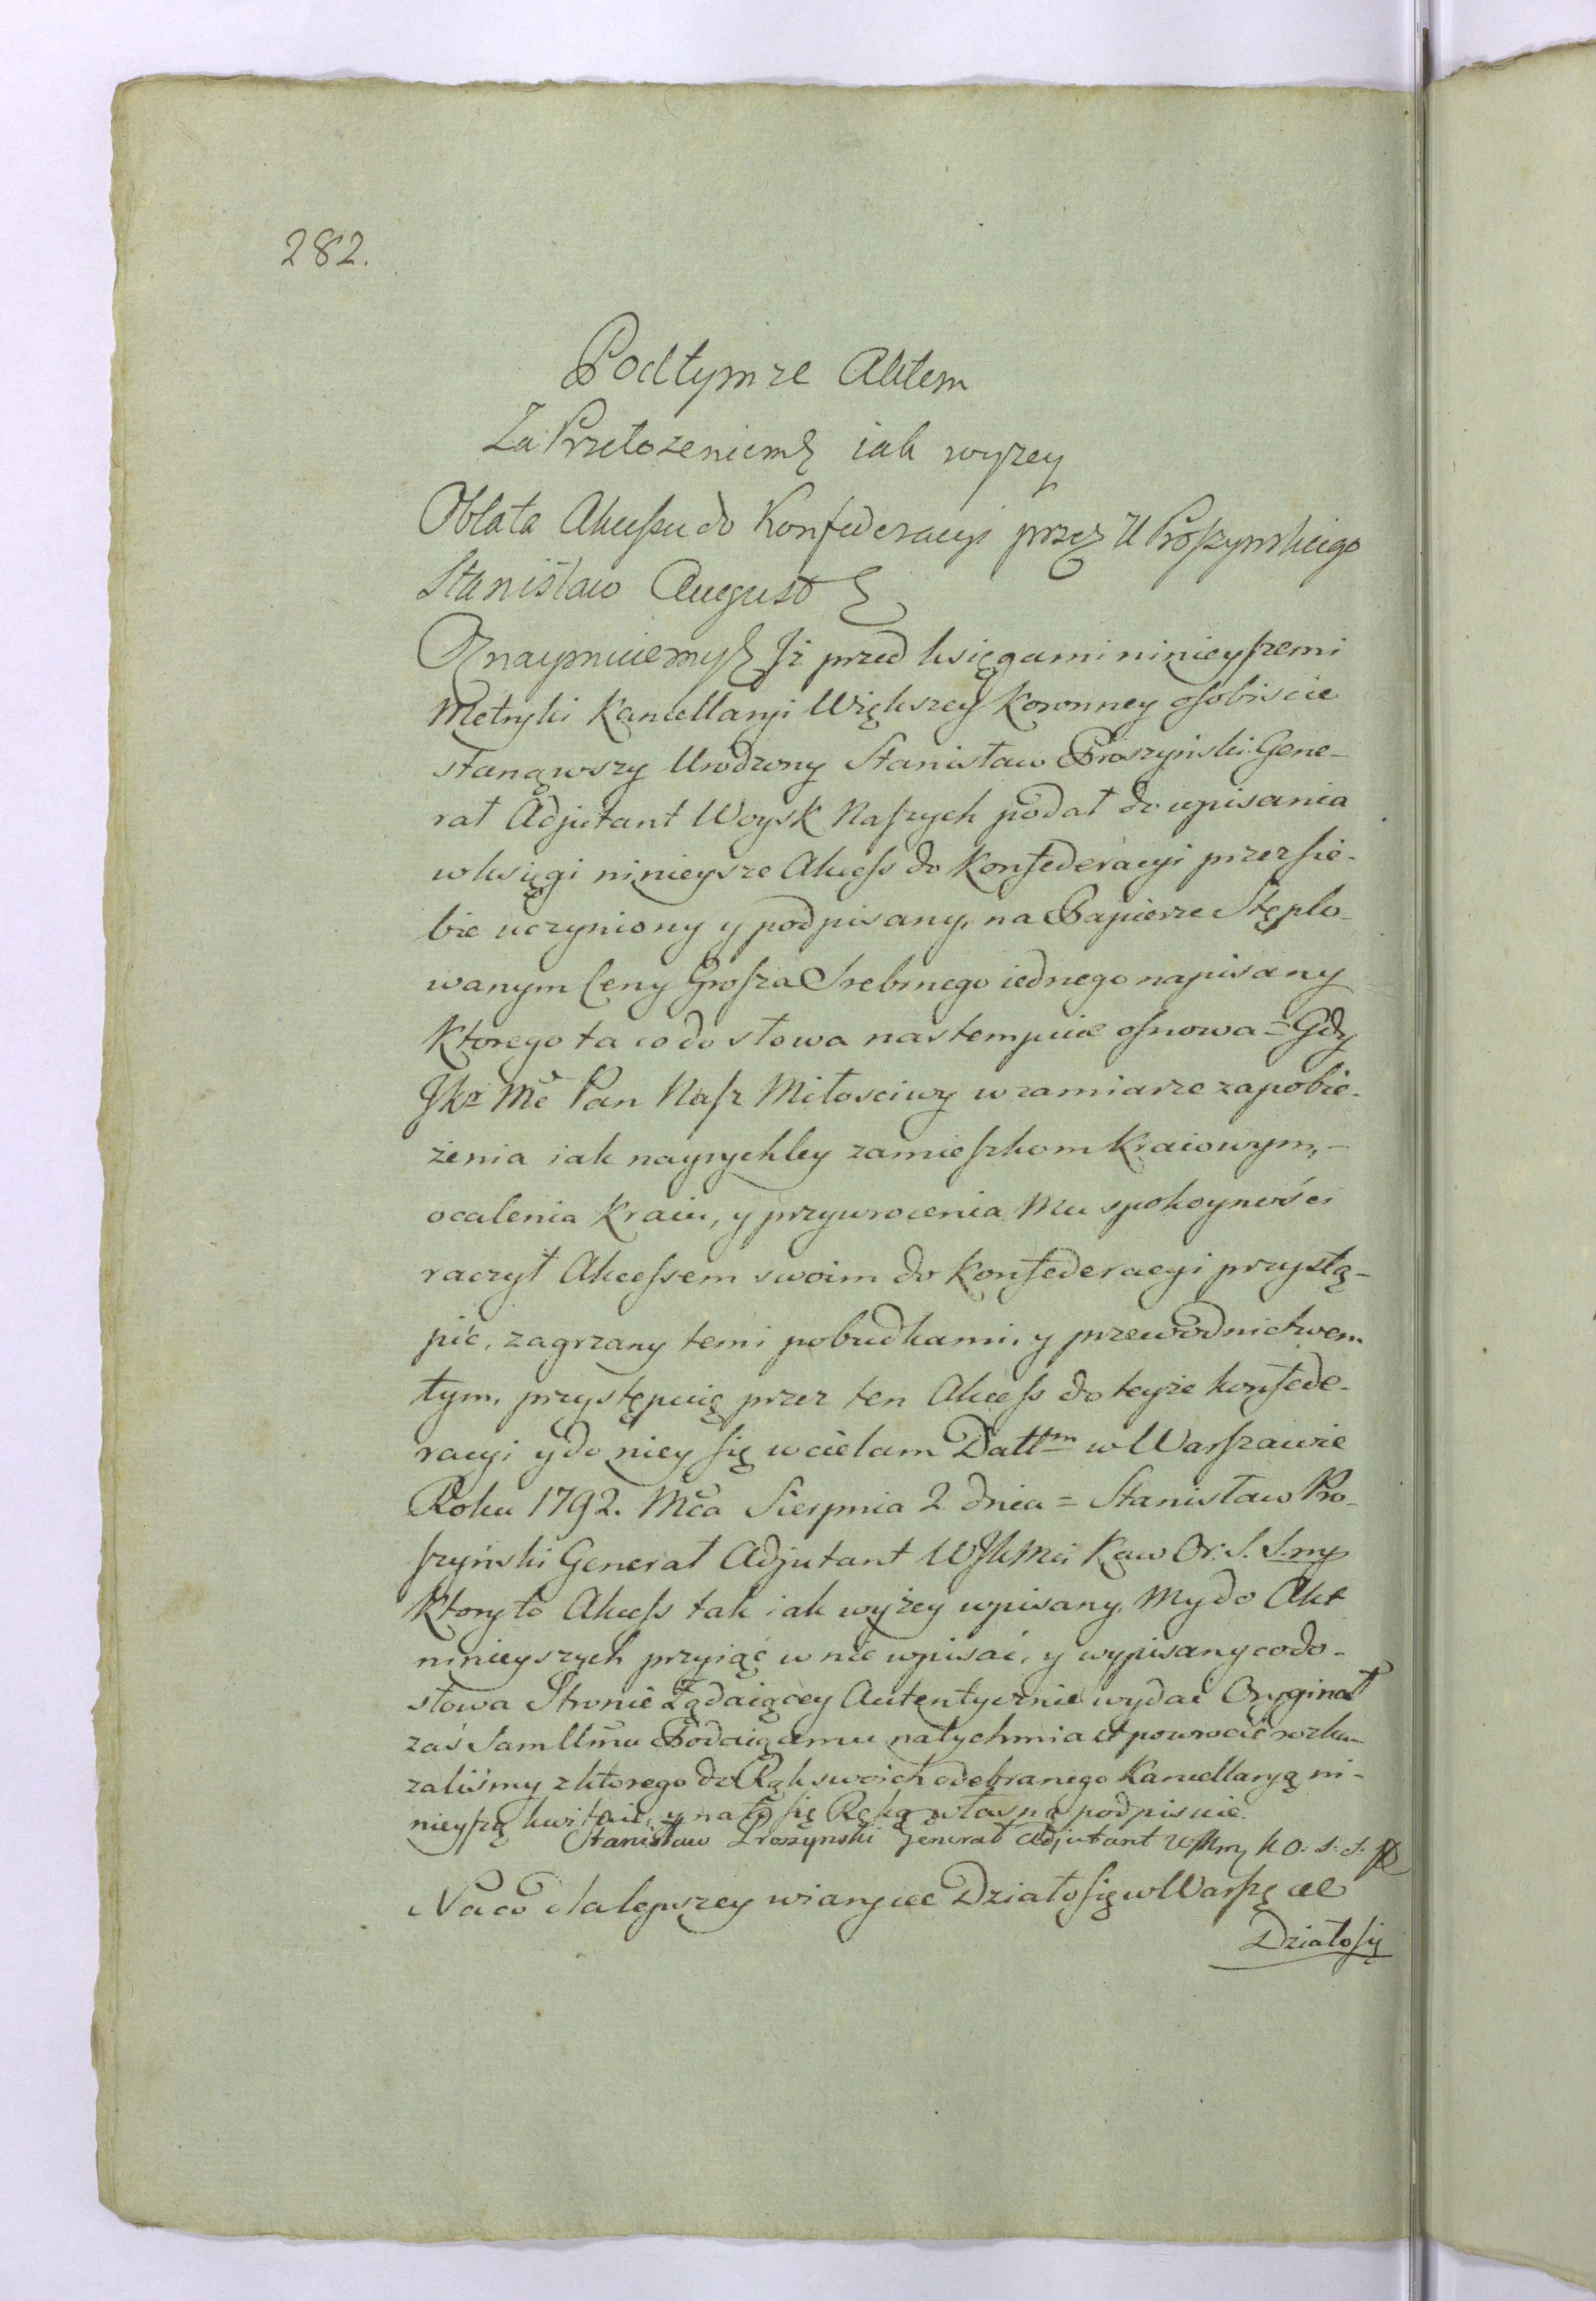 282.
Podtymze Aktem
Za Przełozeniem iak wyzey
Oblata Akcessu do Konfederacyi przez U Proszynskiego
Stanisław August
Oznaymuiemy Jż przed księgami ninieyszemi
Metryki Kancellaryi Większey Koronney osobiscie
stanąwszy Urodzony Stanisław Proszyński Gene-
rał Adjutant Woysk Naszych podał do wpisania
w księgi ninieysze Akcess do Konfederacyi przez sie-
bie uczyniony y podpisany, na Papierze Stęplo-
wanym Ceny Grosza Srebrnego iednego napisany
Ktorego ta co do słowa nastempuie osnowa = Gdy
JKr Mć Pan Nasz Miłosciwy w zamiarze zapobie-
żenia iak nayrychley zamieszkom Kraiowym, -
ocalenia Kraiu, y przywrocenia Mu spokoyności
raczył Akcessem swoim do Konfederacyi przystą-
pić, zagrzany temi pobudkami, y przewodnictwem
tym, przystępuię przez ten Akcess do teyże konfede-
racyi y do niey się wcielam Dattm w Warszawie
Roku 1792. Mca Sierpnia 2 dnia = Stanisław Pro-
szyński Generał Adjutant WJKMci Kaw Or: S. S. mp
Ktory to Akcess tak iak wyżey wpisany, My do Akt
ninieyszych przyiąć w nie wpisać, y wypisany co do-
słowa Stronie Żądaiącey Autentycznie wydać Oryginał
zaś Samemu Podaiącemu natychmiast powrocić rozka-
zaliśmy z ktorego do Rąk swoich odebranego Kancellaryą ni-
nieyszą kwituie, y na to się Ręką własną podpisuie.
Stanisław Proszynski Generał Adjutant WJKmy K O: S: S:
Na co dalepszey wiary ec Działo się w Warszę ec
Działo się